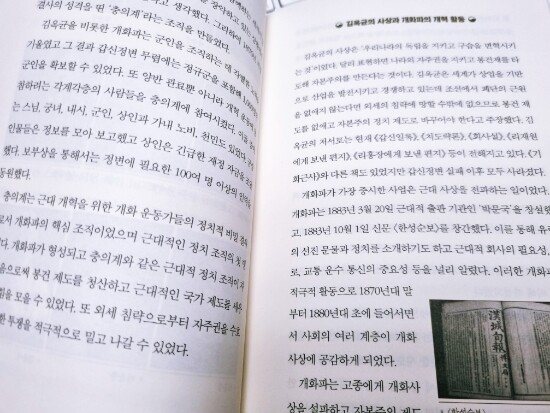 결사의 성격을 띤 '충의계'라는 조직을 만들었다.
김옥균을 비롯한 개화파는 군인을 조직하는 데 각별
기울였고 그 결과 갑신정변 무렵에는 정규군을 포함해
군인을 확보할 수 있었다. 또 양반 관료뿐 아니라 개혁 운동
참하려는 각계각층의 사람들을 충의계에 참여시켰다.
는 스님, 궁녀, 내시, 군인, 상인과 가내 노비, 천민도 있었다.
인물들은 정보를 모아 보고했고 상인은 긴급한 재정 자금을
했다. 보부상을 통해서는 정변에 필요한 100여 명 이상의
동원했다.
충의계는 근대 개혁을 위한 개화 운동가들의 정치적 비밀 결
로서 개화파의 핵심 조직이었으며 근대적인 정치 조직의 첫
다. 개화파가 형성되고 충의계와 같은 근대적 정치 조직이
음으로써 봉건 제도를 청산하고 근대적인 국가 제도를
힘을 모을 수 있었다. 또 외세 침략으로부터 자주권을 수호
한 투쟁을 적극적으로 밀고 나갈 수 있었다.
김옥균의 사상과 개화파의 개혁 활동
김옥균의 사상은 '우리나라의 독립을 지키고 구습을 변혁시키
는 것'이었다. 달리 표현하면 나라의 자주권을 지키고 봉건제를 타
도해 자본주의를 만든다는 것이다. 김옥균은 세계가 상업을 기반
으로 산업을 발전시키고 경쟁하고 있는데 조선에서 폐단의 근원
을 없애지 않는다면 외세의 침략에 망할 수밖에 없으므로 봉건 제
도를 없애고 자본주의 정치 제도로 바꾸어야 한다고 주장했다. 김
옥균의 저서로는 현재 《갑신일록》 《치도약론》 《회사설》 《리재원
에게 보낸 편지》 《리홍장에게 보낸 편지》 등이 전해지고 있다. 《기
화근사》와 다른 책도 있었지만 갑신정변 실패 이후 모두 사라졌다.
개화파가 가장 중시한 사업은 근대 사상을 전파하는 일이었다.
개화파는 1883년 3월 20일 근대적 출판 기관인 '박문국'을 창설했
고, 1883년 10월 1일 신문 《한성순보》를 창간했다. 이를 통해 유럽
의 선진 문물과 정치를 소개하기도 하고 근대적 회사의 필요성,
로, 교통 운수 통신의 중요성 등을 널리 알렸다. 이러한 개화파
적극적 활동으로 1870년대 말
부터 1880년대 초에 들어서면
서 사회의 여러 계층이 개화
사상에 공감하게 되었다.
개화파는 고종에게 개화사
상을 설파하고 자본주의 제도
漢城旬報